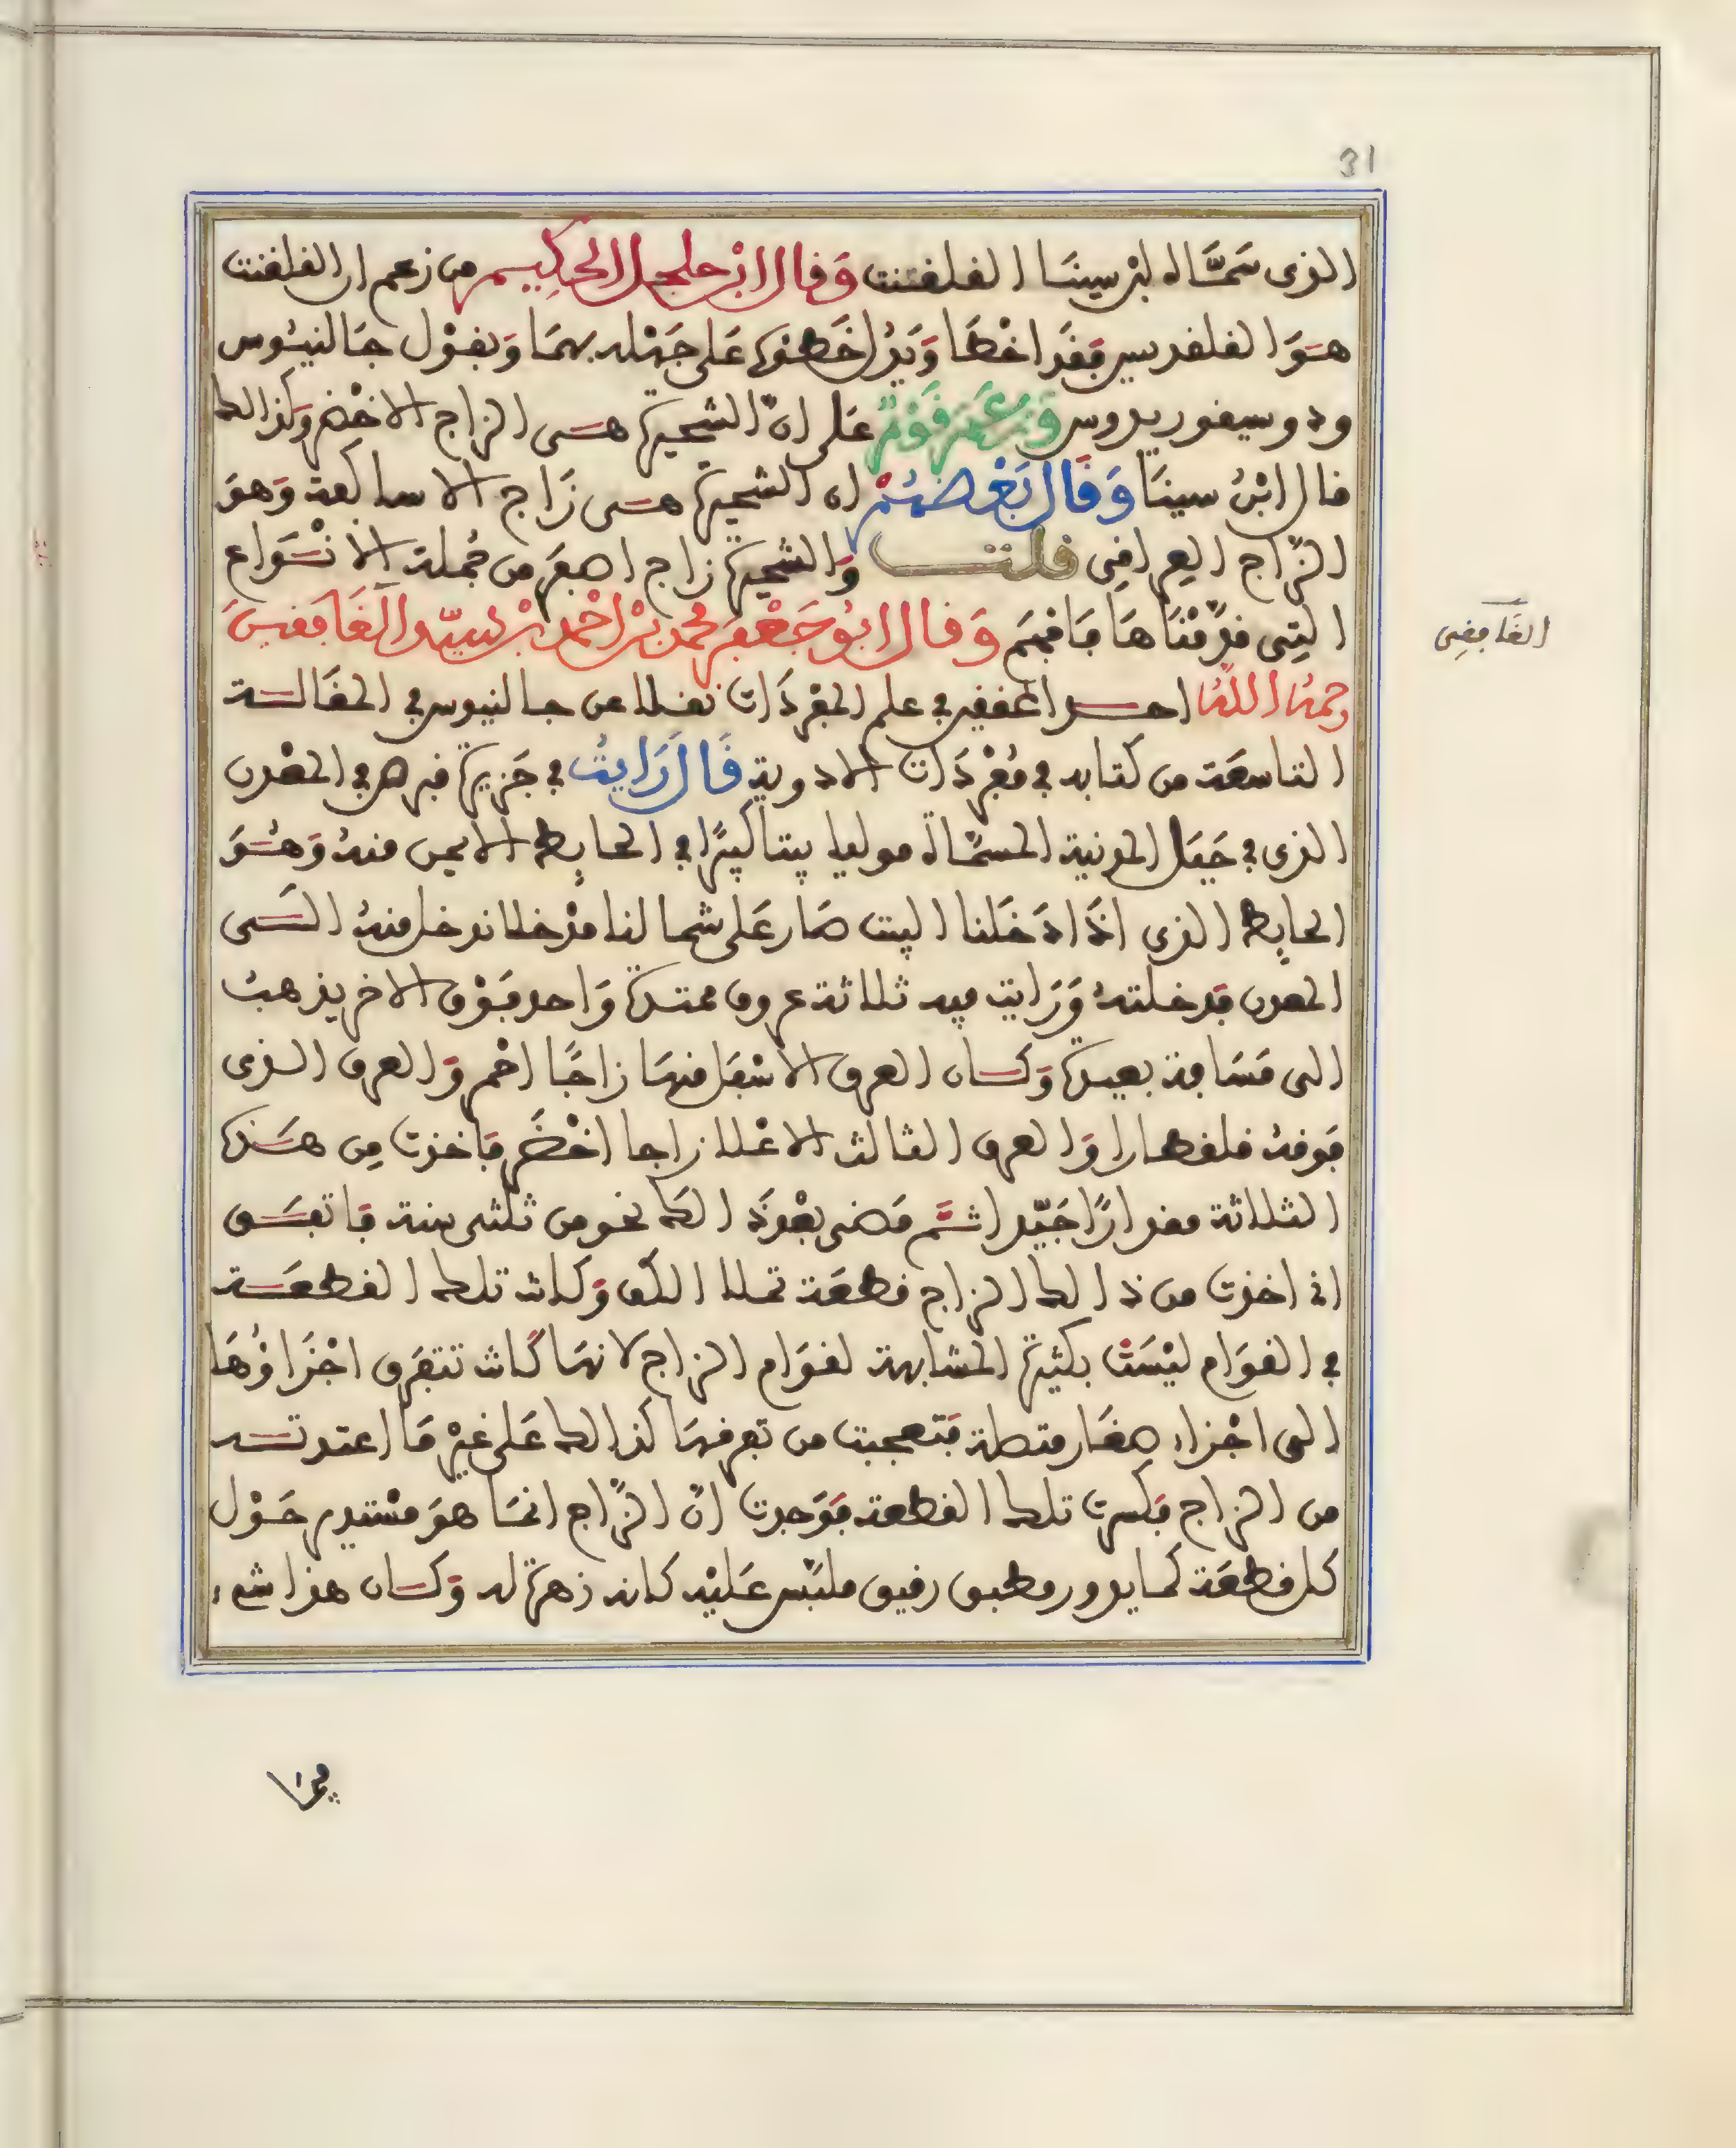 31
الذى سَمَّاه ابن سينَا القلقنت وَقال ابن جلجل الحكِيم من زعم ان القلقنت
هُوَ القلقديس فَقَد اخْطَا وَيَدُل خَطؤه عَلى جَهْله بهمَا وَبقوْل جَالنيُوس
ودوسيقوريدوس وَزعَمَ قَوْمٌ عَلى انّ الشحيرة هى الزاج الاخْضر وكذالك
قال ابْنُ سينَا وَقَال بَعْضهُمْ ان الشحيرة هى زَاج الاساكفة وَهوَ
الزّاج العِراقِى قلت وَالشحيرة زاج اصفَر من جُملة الانْوَاع
التِى قدّمْنَاهَا فَافهَم وَقال ابُو جَعْفر محمد بْن احْمد بْن السيّد الغَافقى
الغَافِقِى
رحمهُ اللهُ احد المحققين فى علم المفْرَدَات نقلا عن جالنيوس فى المقَالة
التاسعَة من كتابه فى مُفْرَدَات الادوية قَالَ رَايتُ فى جَزيرة قبرص فى المعْدن
الذى فى جَبَل المونية المسمَّاة موليا بيتا كبيرًا فى الحايِط الايمن منهُ وَهُوَ
الحايِط الذى اذَا دَخَلنا البيت صَار عَلى شمالنا مدْخلا ندخل منهُ الى
المعدن فدخلتهُ وَرَايت فيه ثلاثة عروق ممتدة وَاحد فَوْق الاخر يذهبُ
الى مَسَافة بعيدة وَكان العرق الاسْفَل منهَا زاجًا احْمر وَالعرق الذى
فَوقهُ قلقطارا وَالعرق الثالث الاعْلا زاجا اخْضَر فَاخذت مِن هَذه
الثلاثة مقدارًا جَيّدا ثمَّ مَضى بعْد ذَالك نحو من ثلثى سنة فَاتفَق
انى اخذت من ذالك الزاج قطعَة تملا الكف وَكانت تلك القطعَة
فى القوَام ليْسَتْ بكثيرة المشابهة لقوَام الزاج لانهَا كَانت تتفَرق اجْزَاؤُهَا
الى اجْزاء صغَار متصلة فَتعجبت من تعرفهَا كذالك عَلى غيْر مَا اعتدته
من الزاج فَكسرت تلك القطعة فَوَجدت انّ الزّاج انمَا هوَ مسْتدير حَوْل
كل قطعَة كمَا يدور مطبق رقيق ملبّس عَليْه كانه زهرة له وَكان هذا شىء